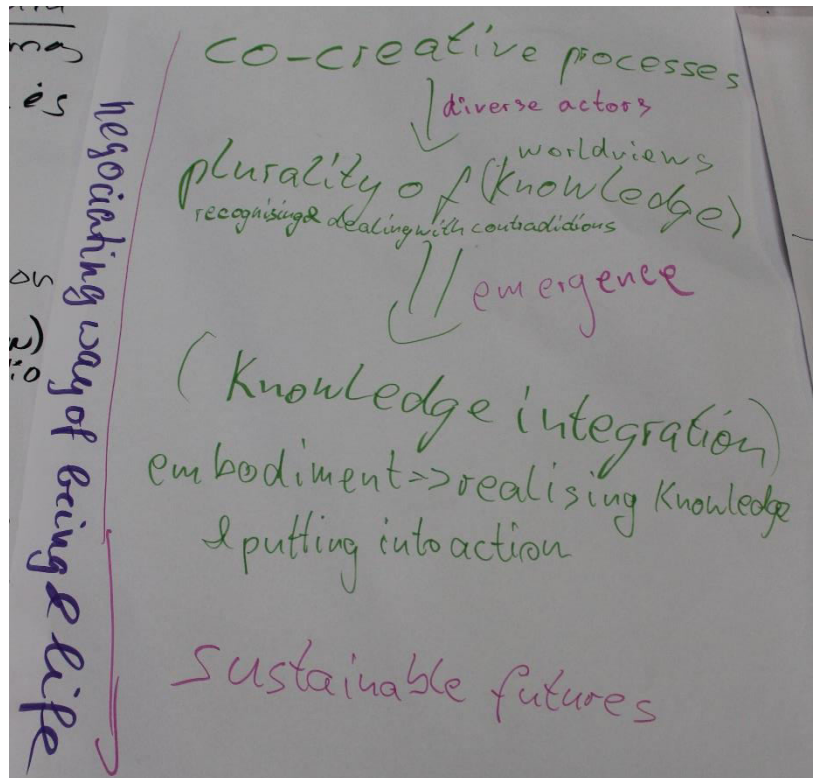 co-creative processes
diverse actors
worldviews
plurality of (knowledge)
recognising & dealing with contradidions
emergence
(Knowledge integration)
embodiment => realising Knowledge
& putting into action
sustainable futures
negociating way of being & life
és
on